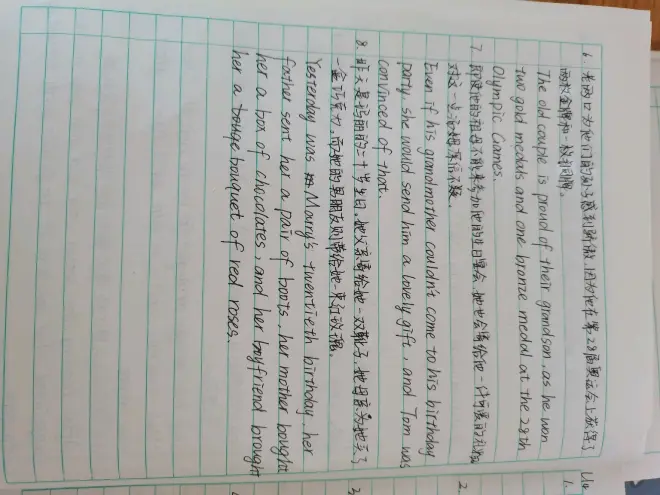 6. 老两口为他们的孙子感到骄傲,因为他在第28届奥运会上获得了
两枚金牌和一枚铜牌。
The old couple is proud of their grandson, as he won
two gold medals and one bronze medal at the 28th
Olympic Games.
7. 即使他的祖母不能来参加他的生日聚会,她也会寄给他一件可爱的礼物
对这一点汤姆深信不疑。
Even if his grandmother couldn't come to his birthday
party, she would send him a lovely gift, and Tom was
convinced of that.
8. 昨天是玛丽的二十岁生日,她父亲寄给她一双靴子,她母亲为她买了
一盒巧克力,而她的男朋友则带给她一束红玫瑰。
Yesterday was Mary's twentieth birthday, her
father sent her a pair of boots, her mother bought
her a box of chocolates, and her boyfriend brought
her a bouqe bouquet of red roses.
1.
2.
3.